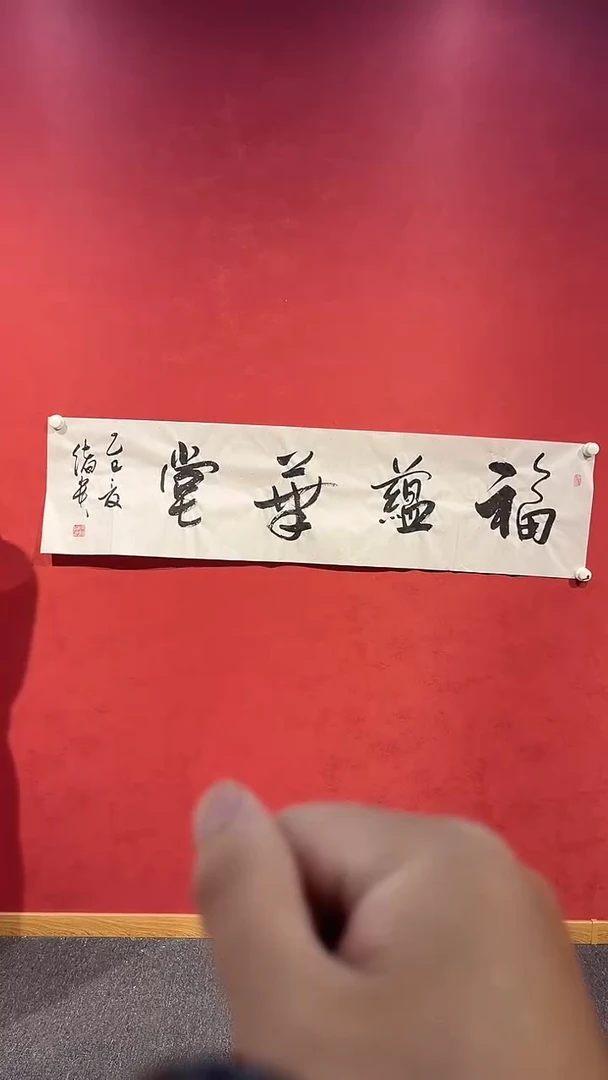 福蘊華堂
乙巳夏